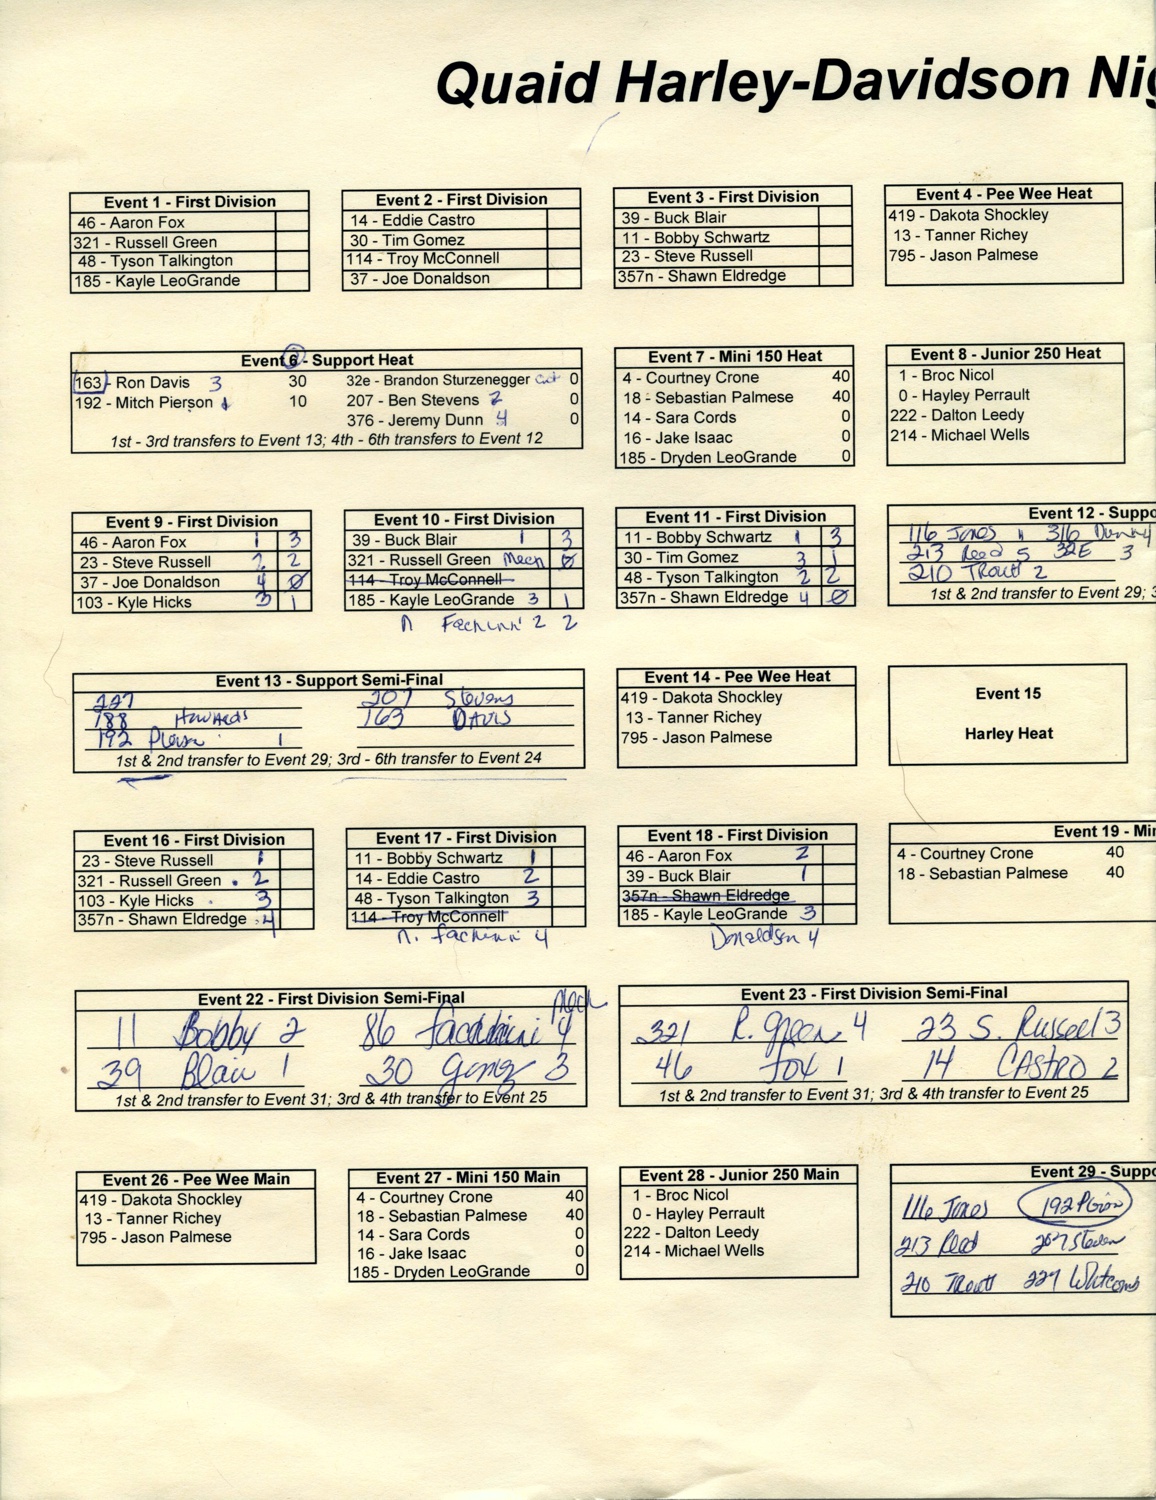 Quaid Harley-Davidson Nig
Event 1 - First Division
46 - Aaron Fox
321 - Russell Green
48 - Tyson Talkington
185 - Kayle LeoGrande
Event 2 - First Division
14 - Eddie Castro
30 - Tim Gomez
114 - Troy McConnell
37 - Joe Donaldson
Event 3 - First Division
39 - Buck Blair
11 - Bobby Schwartz
23 - Steve Russell
357n - Shawn Eldredge
Event 4 - Pee Wee Heat
419 - Dakota Shockley
13 - Tanner Richey
795 - Jason Palmese
Event 6 - Support Heat
163 - Ron Davis 3 30
192 - Mitch Pierson 1 10
32e - Brandon Sturzenegger 0
207 - Ben Stevens 2 0
376 - Jeremy Dunn 4 0
1st - 3rd transfers to Event 13; 4th - 6th transfers to Event 12
Event 7 - Mini 150 Heat
4 - Courtney Crone 40
18 - Sebastian Palmese 40
14 - Sara Cords 0
16 - Jake Isaac 0
185 - Dryden LeoGrande 0
Event 8 - Junior 250 Heat
1 - Broc Nicol
0 - Hayley Perrault
222 - Dalton Leedy
214 - Michael Wells
Event 9 - First Division
46 - Aaron Fox 1 3
23 - Steve Russell 2 2
37 - Joe Donaldson 4 0
103 - Kyle Hicks 3 1
Event 10 - First Division
39 - Buck Blair 1 3
321 - Russell Green Mech 0
114 - Troy McConnell
185 - Kayle LeoGrande 3 1
n Fachinni 2 2
Event 11 - First Division
11 - Bobby Schwartz 1 3
30 - Tim Gomez 3 1
48 - Tyson Talkington 2 2
357n - Shawn Eldredge 4 0
Event 12 - Suppo
116 Jones 316 Dunn 4
213 Reed 5 32E 3
210 Trout 2
1st & 2nd transfer to Event 29; 3
Event 13 - Support Semi-Final
227 207 Stevens
188 163 Davis
192 1
1st & 2nd transfer to Event 29; 3rd - 6th transfer to Event 24
Event 14 - Pee Wee Heat
419 - Dakota Shockley
13 - Tanner Richey
795 - Jason Palmese
Event 15
Harley Heat
Event 16 - First Division
23 - Steve Russell 1
321 - Russell Green 2
103 - Kyle Hicks 3
357n - Shawn Eldredge 4
Event 17 - First Division
11 - Bobby Schwartz 1
14 - Eddie Castro 2
48 - Tyson Talkington 3
114 - Troy McConnell
n. Fachinni 4
Event 18 - First Division
46 - Aaron Fox 2
39 - Buck Blair 1
357n - Shawn Eldredge
185 - Kayle LeoGrande 3
Donaldson 4
Event 19 - Min
4 - Courtney Crone 40
18 - Sebastian Palmese 40
Event 22 - First Division Semi-Final
Mech
11 Bobby 2 86 4
39 Blair 1 30 Gomez 3
1st & 2nd transfer to Event 31; 3rd & 4th transfer to Event 25
Event 23 - First Division Semi-Final
321 R. Green 4 23 S. Russell 3
46 Fox 1 14 Castro 2
1st & 2nd transfer to Event 31; 3rd & 4th transfer to Event 25
Event 26 - Pee Wee Main
419 - Dakota Shockley
13 - Tanner Richey
795 - Jason Palmese
Event 27 - Mini 150 Main
4 - Courtney Crone 40
18 - Sebastian Palmese 40
14 - Sara Cords 0
16 - Jake Isaac 0
185 - Dryden LeoGrande 0
Event 28 - Junior 250 Main
1 - Broc Nicol
0 - Hayley Perrault
222 - Dalton Leedy
214 - Michael Wells
Event 29 - Suppo
116 Jones 192
213 Reed 207 Steven
210 Trout 227 Whitcomb